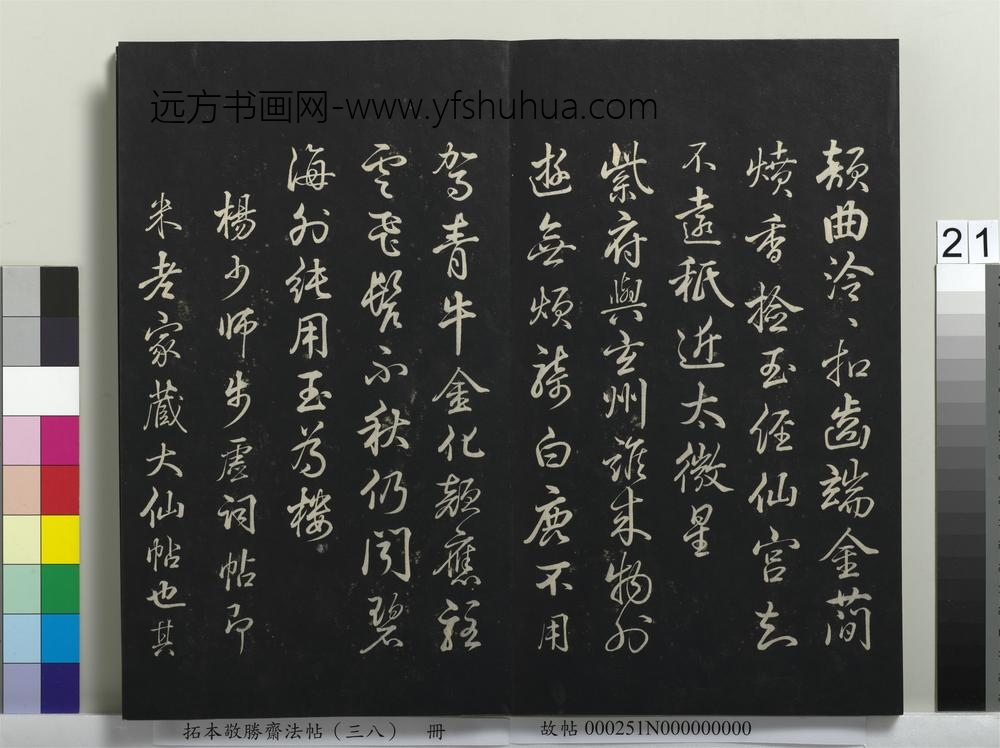 远方书画网-www.yfshuhua.com
曲泠泠扣齒端金簡
燌香撿玉經仙宮知
不遠秖近太微星
紫府與玄州誰來物外
遊無煩騎白鹿不用
駕青牛金化顏應駐
雲飛鬢不秋仍聞碧
海外純用玉為樓
楊少師步虛詞帖即
米老家藏大仙帖也其
21
拓本敬勝齋法帖(三八) 冊
故帖 000251N000000000